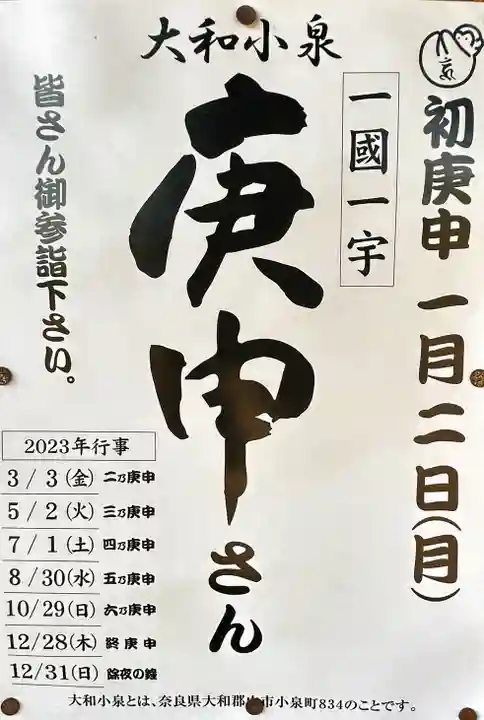 大和小泉
初庚申 一月二日(月)
一國一宇
庚申さん
皆さん御参詣下さい。
2023年行事
3/3(金) 二乃庚申
5/2(火) 三乃庚申
7/1(土) 四乃庚申
8/30(水) 五乃庚申
10/29(日) 六乃庚申
12/28(木) 終庚申
12/31(日) 除夜の鐘
大和小泉とは、奈良県大和郡山市小泉町834のことです。